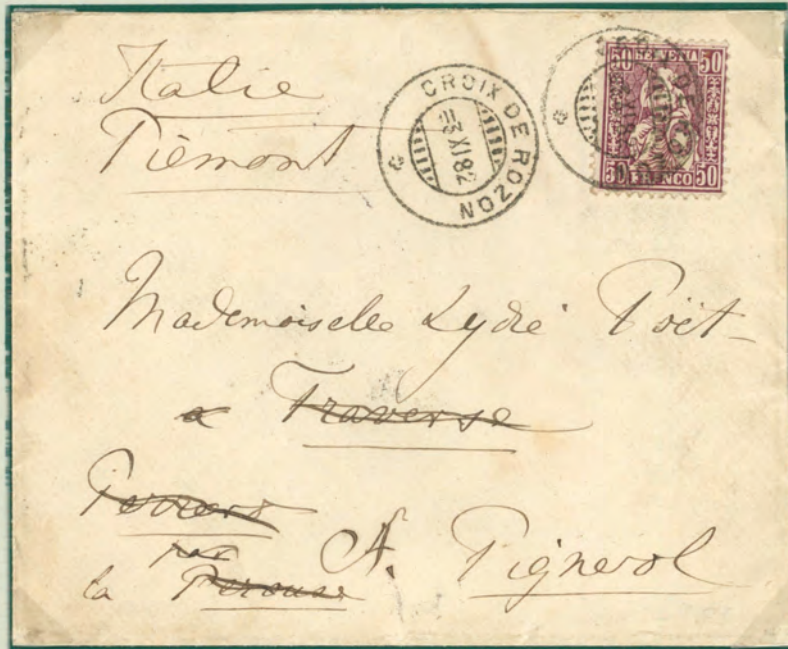 Italie
Piémont
CROIX DE ROZON
3 XI 82
50 HELVETIA 50
50 FRANCO 50
Mademoiselle Lydie Poët
a Traverse
Perrero
par
la Perouse
A. Pignerol